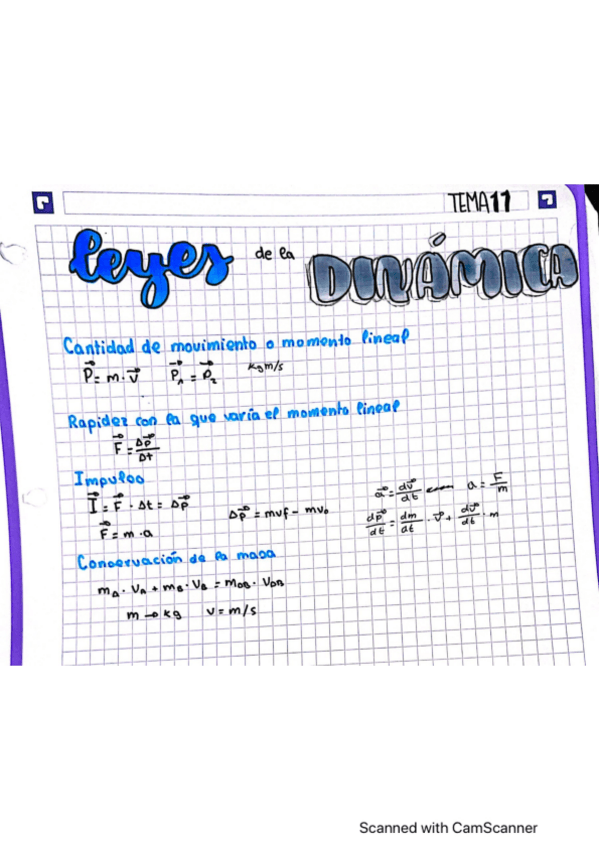 TEMA 11
leyes de la DINÁMICA
Cantidad de movimiento o momento lineal
P⃗ = m · v⃗   P⃗₁ = P⃗₂   kg m/s
Rapidez con la que varía el momento lineal
F⃗ = Δp⃗/Δt
Impulso
I⃗ = F⃗ · Δt = Δp⃗   Δp⃗ = mvf - mv₀   a⃗ = dv⃗/dt   a = F/m
F⃗ = m · a   dp⃗/dt = dm/dt · v⃗ + dv⃗/dt · m
Conservación de la masa
mA · VA + mB · VB = mAB · VAB
m → kg   v = m/s
Scanned with CamScanner